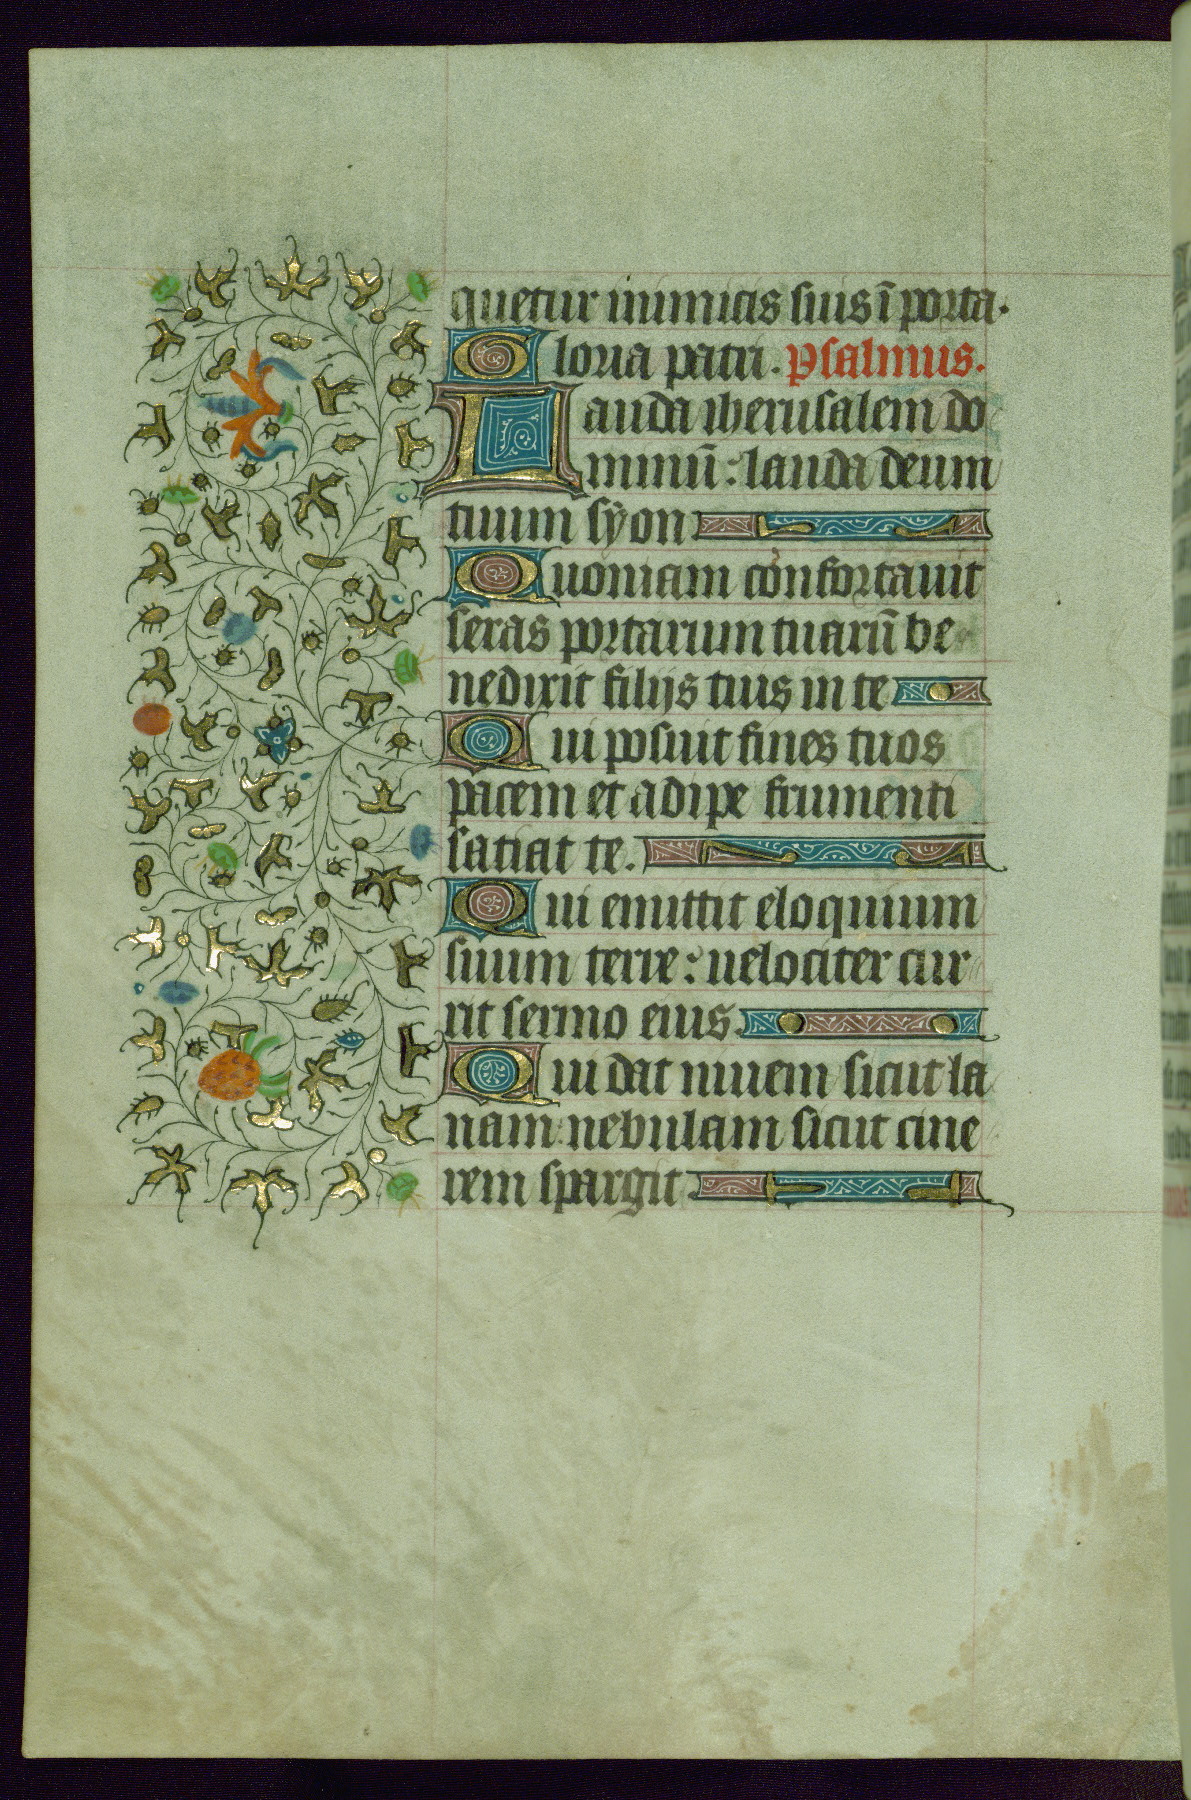 quetur inimicis suis ī porta.
Gloria patri. Psalmus.
Lauda iherusalem do
minuī: lauda deum
tuum sẏon
Quoniam confortauit
seras portarum tuarū be
nedixit filijs tuis in te
Qui posuit fines tuos
pacem et adipe frumenti
satiat te.
Qui emittit eloquium
suum terre: uelociter cur
rit sermo eius
Qui dat niuem sicut la
nam nebulam sicut cine
rem spargit